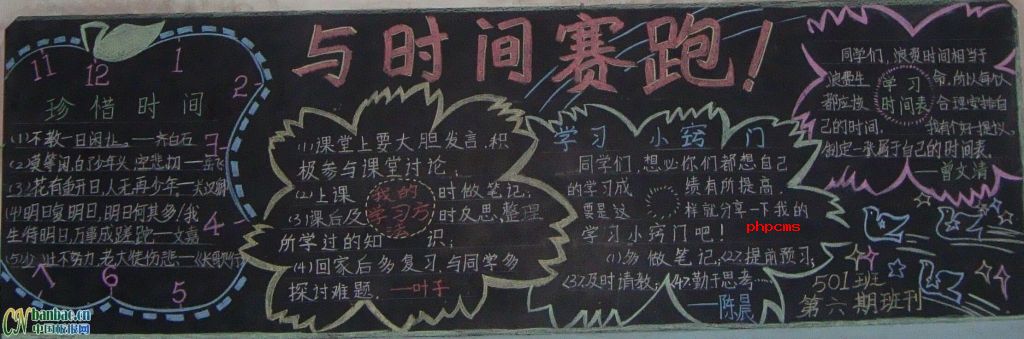 与时间赛跑！
11
12
1
2
3
4
5
6
7
珍惜时间
(1)不教一日闲过。——齐白石
(2)莫等闲,白了少年头,空悲切——岳飞
(3)花有重开日,人无再少年——关汉卿
(4)明日复明日,明日何其多!我
生待明日,万事成蹉跎——文嘉
(5)少壮不努力,老大徒伤悲——《长歌行》
(1)课堂上要大胆发言,积
极参与课堂讨论;
(2)上课 时做笔记;
(3)课后及 时反思,整理
所学过的知 识;
(4)回家后多复习,与同学多
探讨难题. ——叶子
我的
学习方
法
学习 小窍 门
同学们,想必你们都想自己
的学习成 绩有所提高.
要是这 样就分享一下我的
学习小窍门吧!
(1)多做笔记;(2)提前预习;
(3)及时请教;(4)勤于思考……
——陈晨
phpcms
同学们,浪费时间相当于
浪费生 命,所以每个
都应按 合理安排自
己的时间. 我有个好提议,
制定一张属于自己的时间表.
——曾文清
学习
时间表
501班
第六期班刊
CN banbao.cn
中国板报网